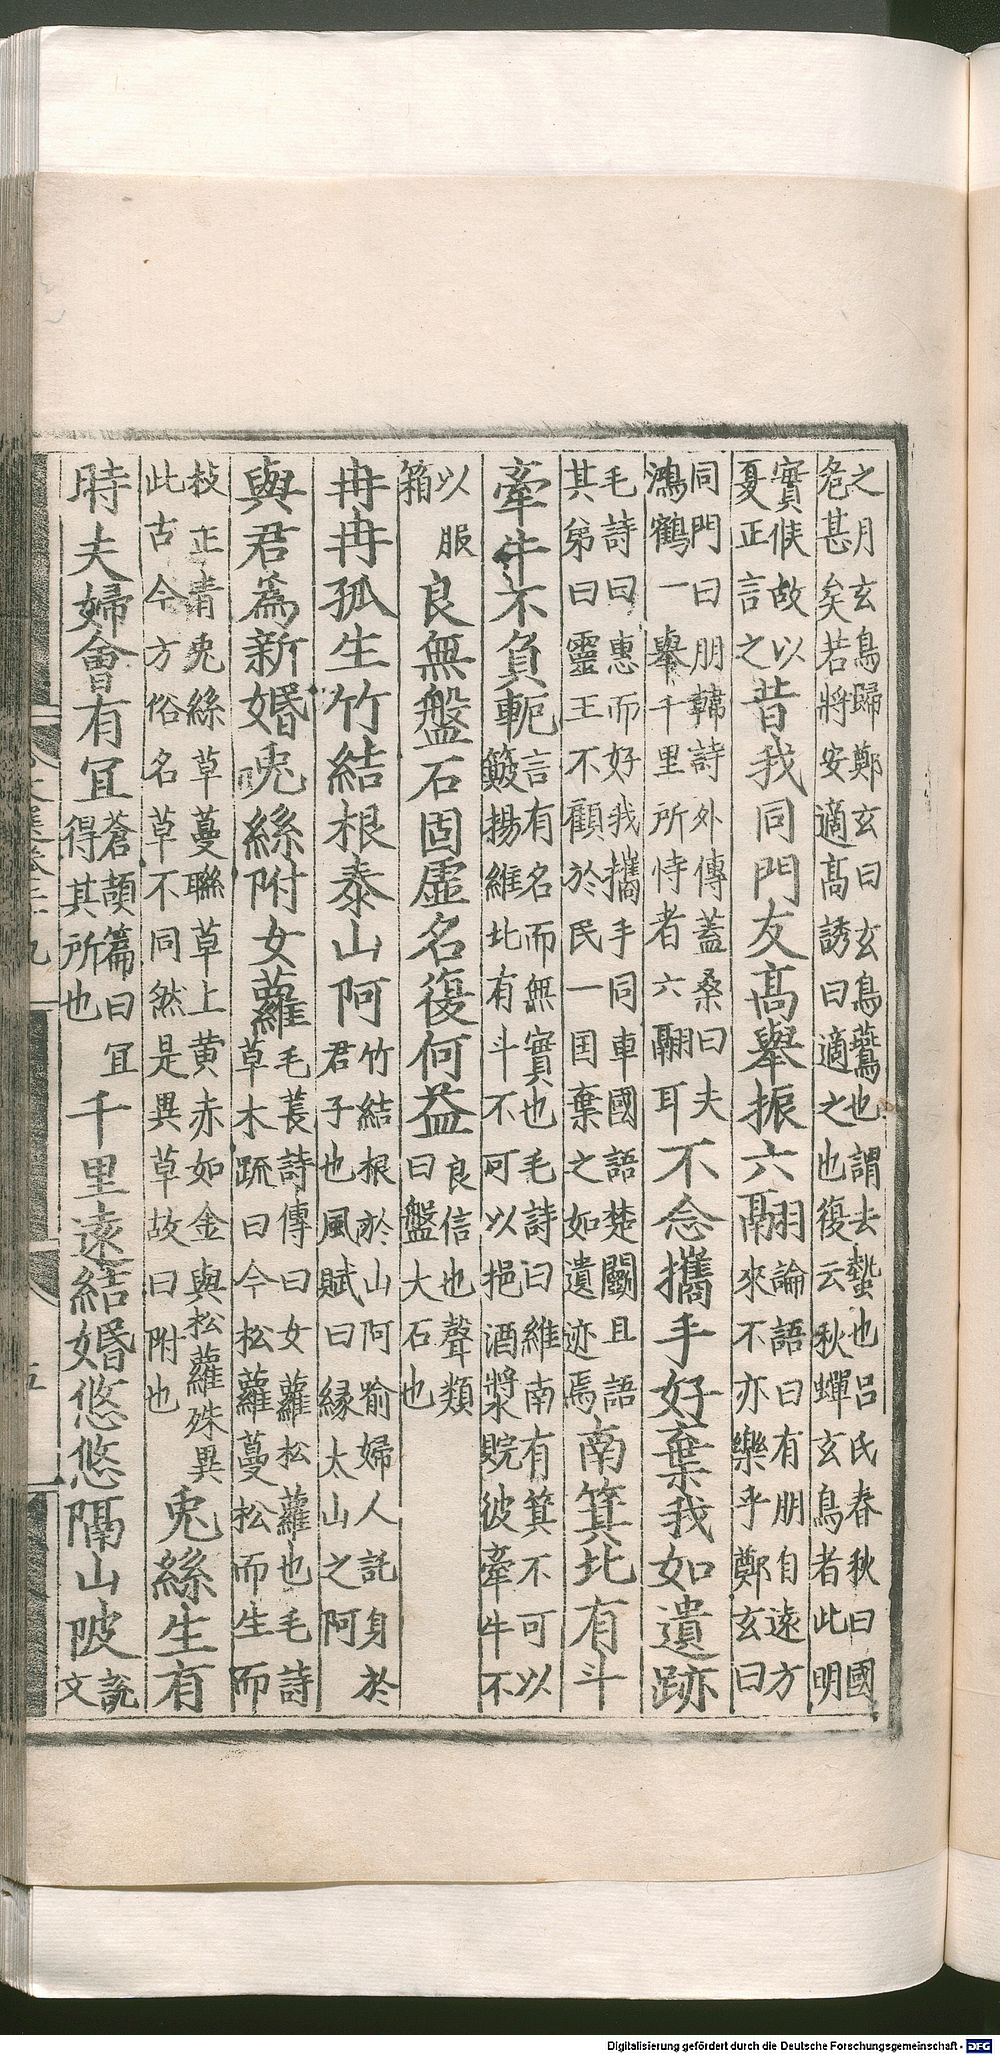 之月玄鳥歸鄭玄曰玄鳥鷰也謂去蟄也呂氏春秋曰國
危甚矣若將安適高誘曰適之也復云秋蟬玄鳥者此明
實候故以
夏正言之
昔我同門友高舉振六翮
論語曰有朋自遠方
來不亦樂乎鄭玄曰
同門曰朋韓詩外傳蓋桑曰夫
鴻鶴一舉千里所恃者六翮耳
不念攜手好棄我如遺跡
毛詩曰惠而好我攜手同車國語楚鬭且語
其弟曰靈王不顧於民一国棄之如遺迹焉
南箕北有斗
牽牛不負軛
言有名而無實也毛詩曰維南有箕不可以
簸揚維北有斗不可以挹酒漿睆彼牽牛不
以服
箱
良無盤石固虛名復何益
良信也聲類
曰盤大石也
冉冉孤生竹結根泰山阿
竹結根於山阿喻婦人託身於
君子也風賦曰緣太山之阿
與君爲新婚兎絲附女蘿
毛萇詩傳曰女蘿松蘿也毛詩
草木疏曰今松蘿蔓松而生而
枝正青兎絲草蔓聯草上黄赤如金與松蘿殊異
此古今方俗名草不同然是異草故曰附也
兎絲生有
時夫婦會有冝
蒼頡篇曰冝
得其所也
千里遠結婚悠悠隔山陂
說
文
Digitalisierung gefördert durch die Deutsche Forschungsgemeinschaft - DFG